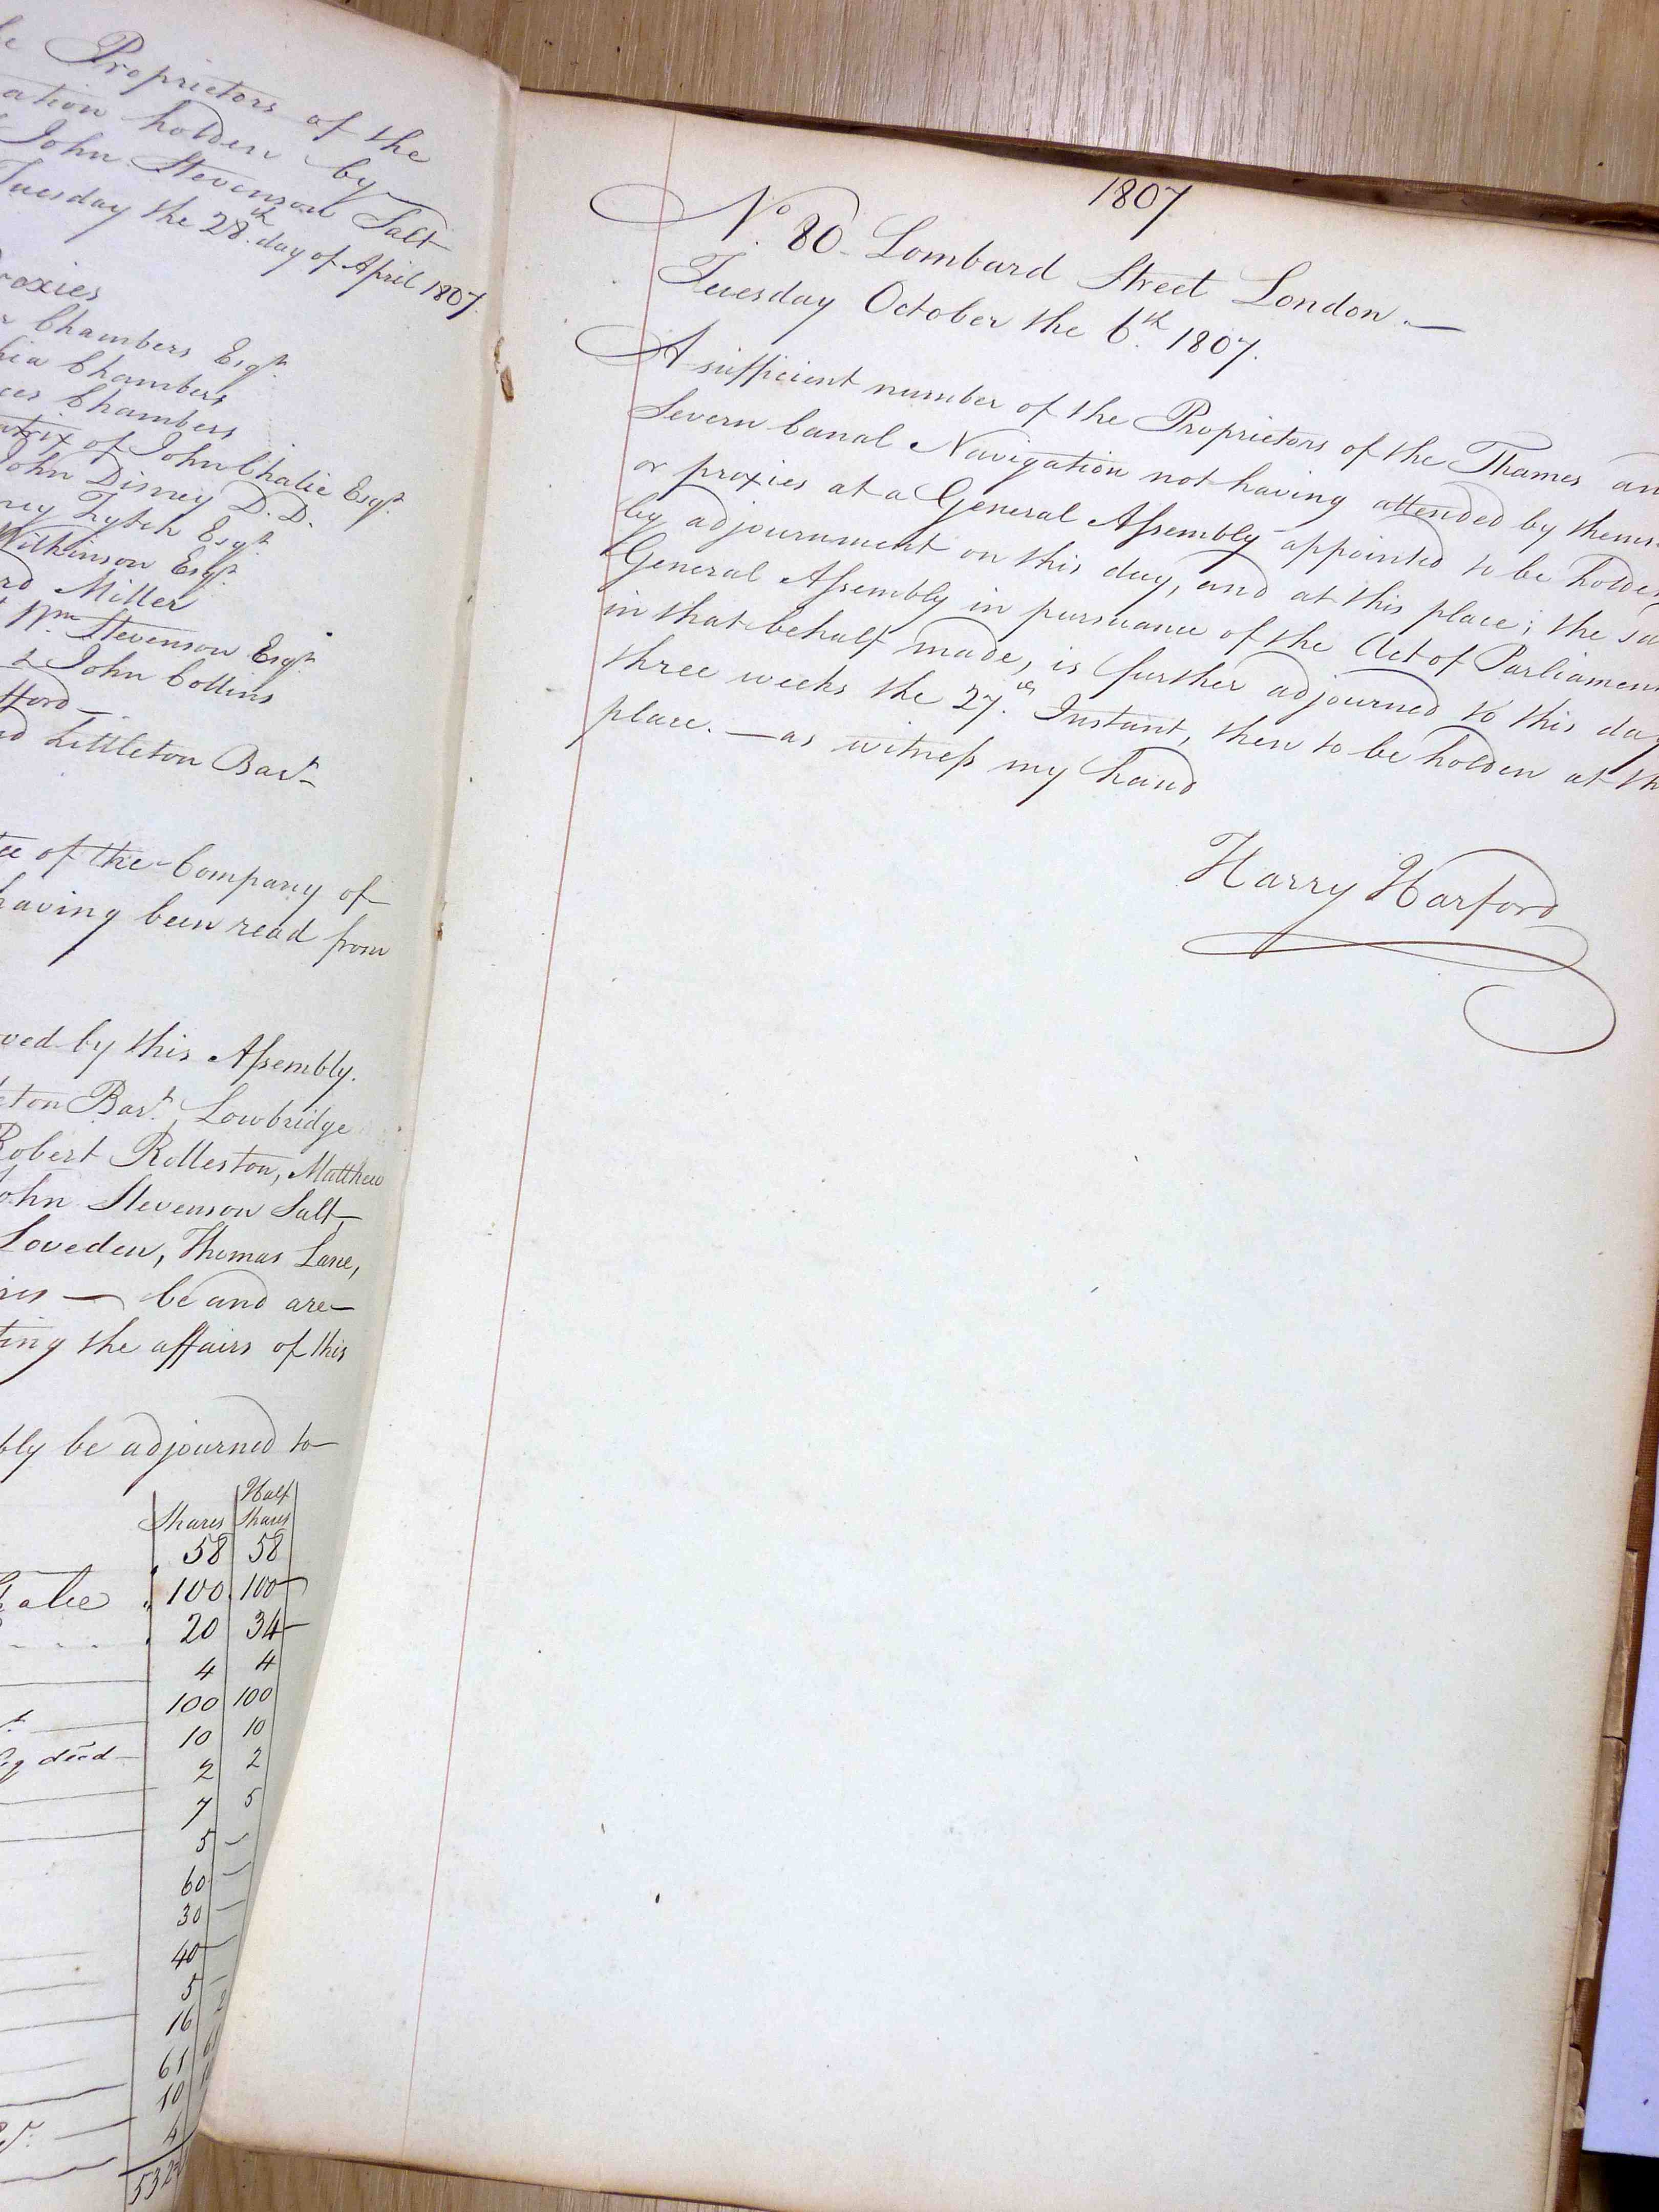 Proprietors of the
ation holden by
John Stevenson Salt
Tuesday the 28th. day of April 1807.
roxies
Chambers Esqr.
hia Chambers
ces Chambers
atrix of John Chalie Esqr.
John Disney D.D.
ney Fytch Esqr.
Wilkinson Esqr.
rd Miller
Wm. Stevenson Esqr.
& John Collins
fford
d Littleton Bart.
ee of the Company of
having been read from
ved by this Assembly.
eton Bart. Lowbridge
Robert Rolleston, Matthew
John Stevenson Salt
Loveden, Thomas Lane,
ris — be and are
ting the affairs of this
bly be adjourned to
Shares Half Shares
58 58
100 100
20 34
4 4
100 100
10 10
2 2
7 5
5 –
60 –
30 –
40 –
5 –
16 2
61
10
4
532
1807
No. 80 Lombard Street London. —
Tuesday October the 6th. 1807.
A sufficient number of the Proprietors of the Thames an
Severn Canal Navigation not having attended by thems
or proxies at a General Assembly appointed to be holden
by adjournment on this day, and at this place; the sa
General Assembly in pursuance of the Act of Parliamen
in that behalf made, is further adjourned to this day
three weeks the 27th. Instant, then to be holden at th
place. — as witness my hand
Harry Harford